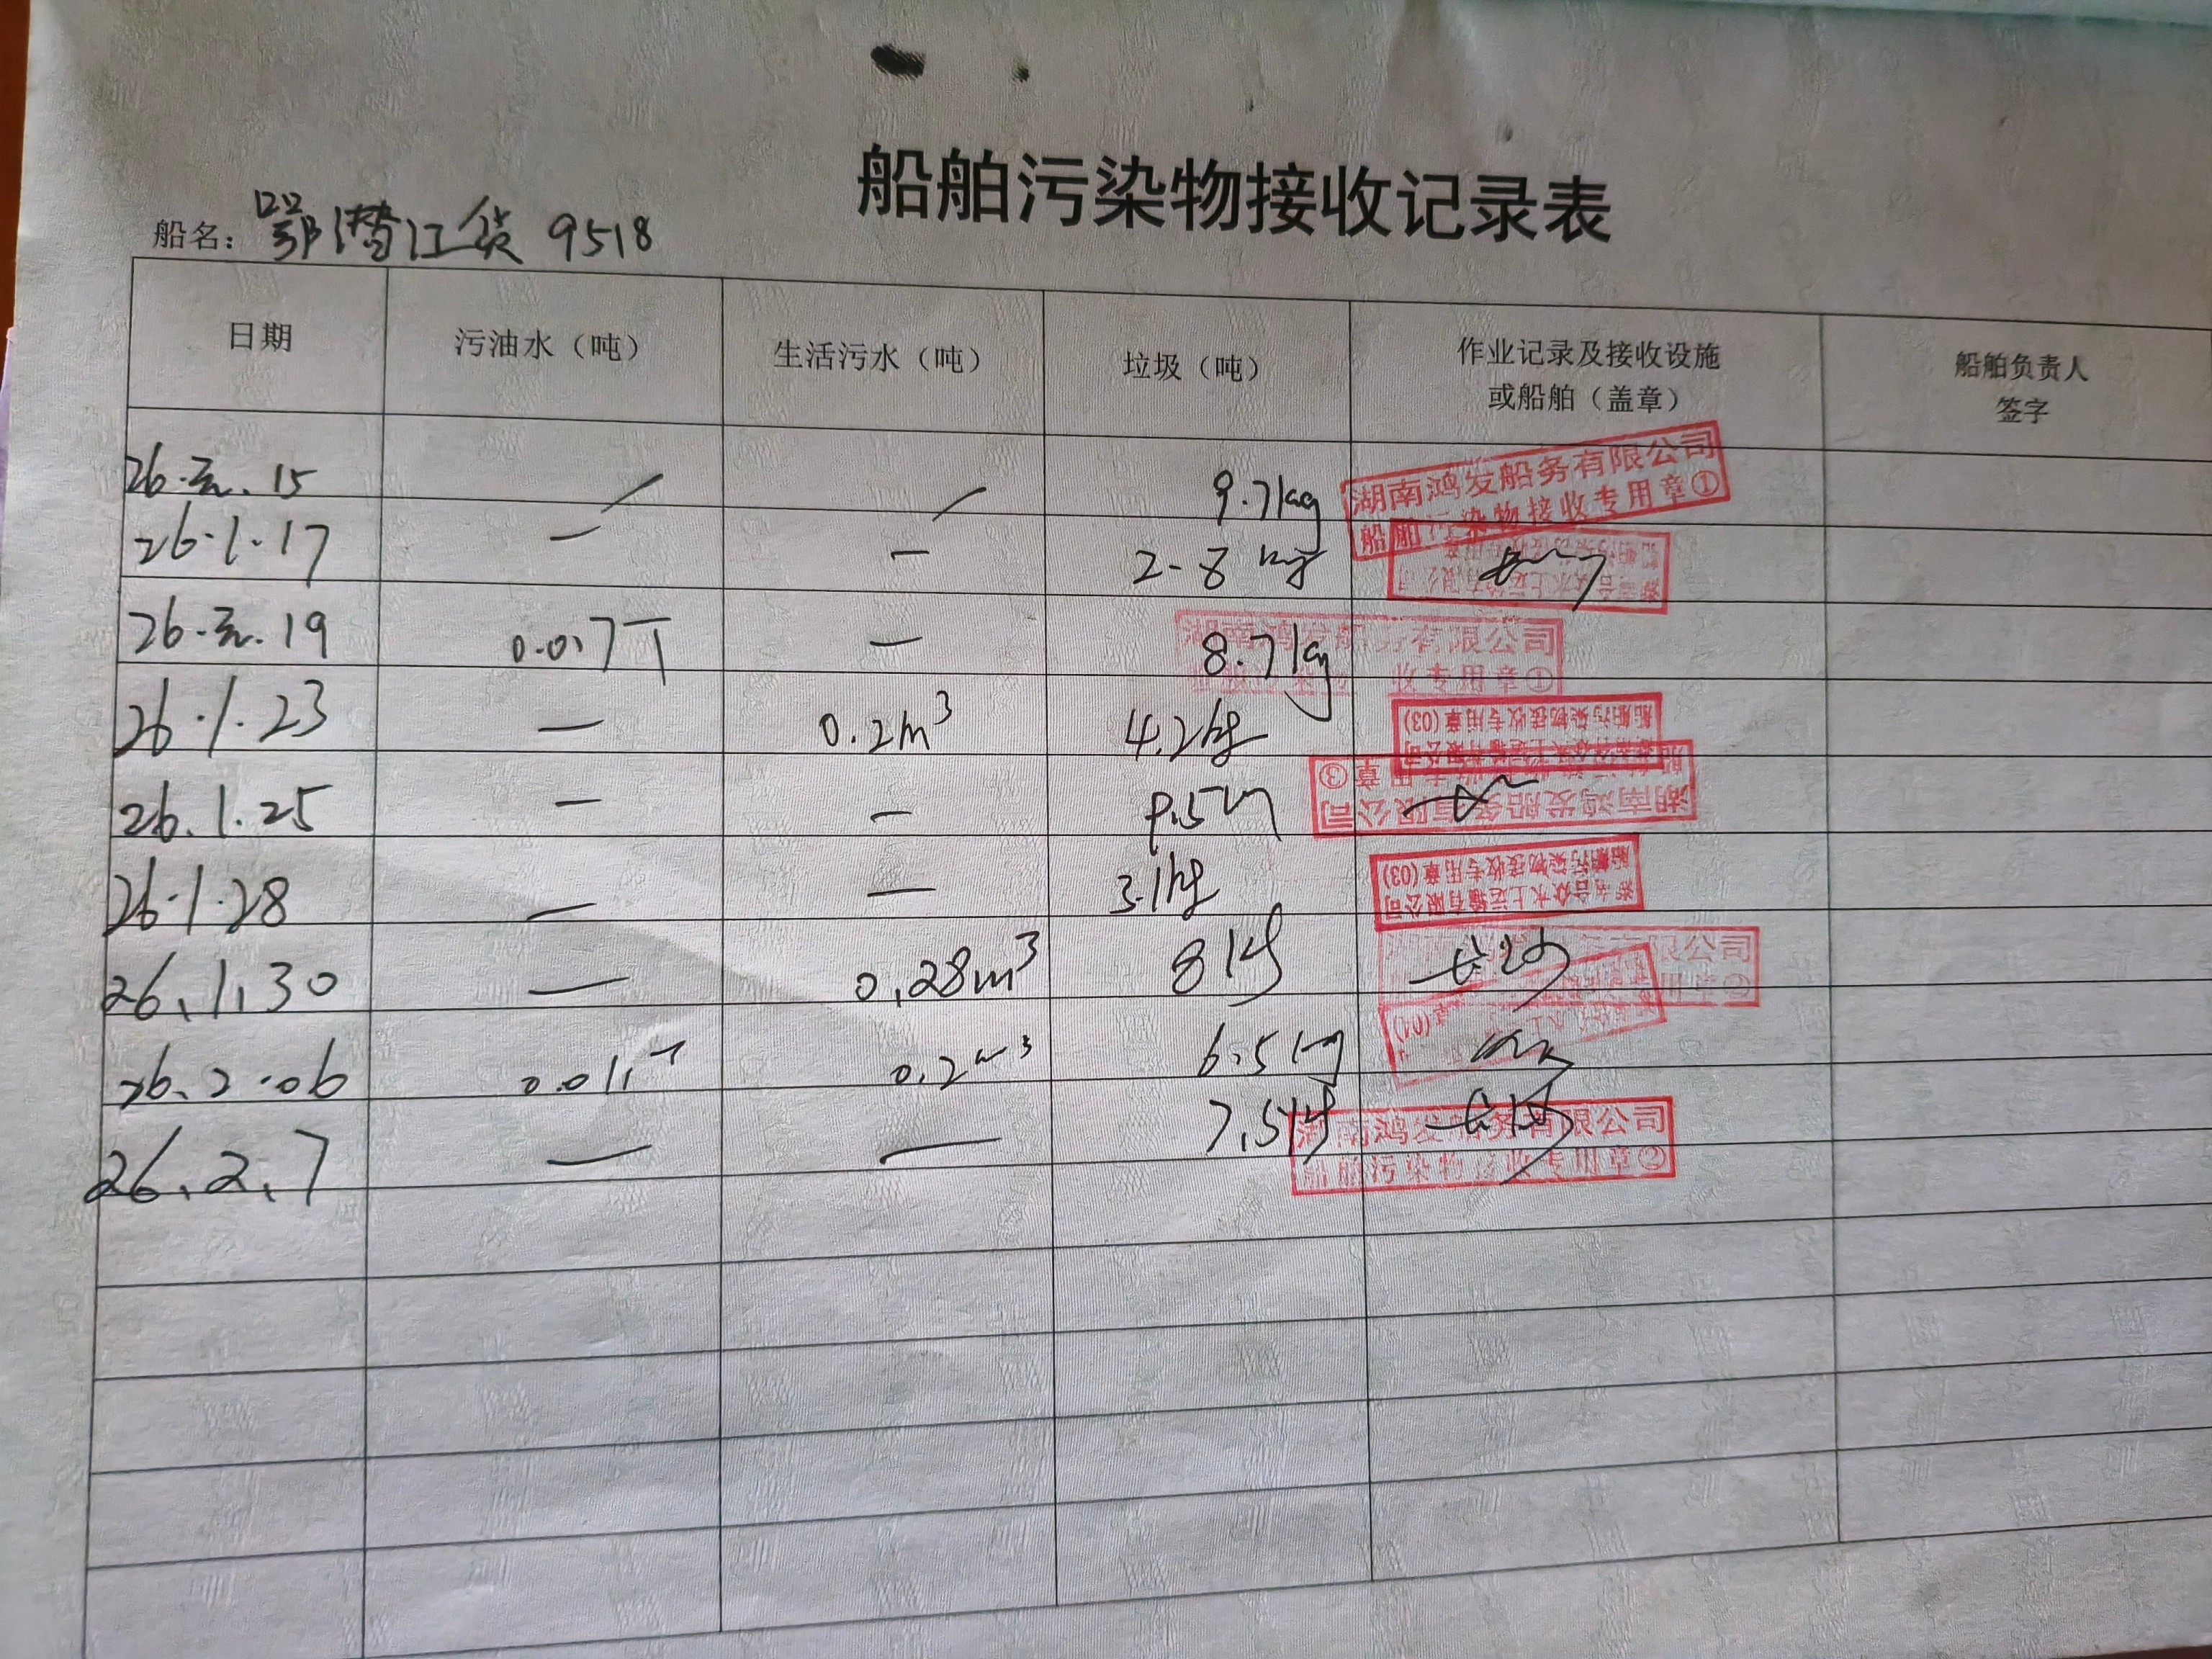 船舶污染物接收记录表
船名：鄂潜江货 9518
日期 污油水（吨） 生活污水（吨） 垃圾（吨） 作业记录及接收设施 船舶负责人
或船舶（盖章） 签字
26.元.15 / / 9.7kg 湖南鸿发船务有限公司
船舶污染物接收专用章①
26.1.17 — — 2-8 kg
26.元.19 0.017T — 8.7kg 湖南鸿发船务有限公司
收专用章①
26.1.23 — 0.2m³ 4.2kg 船舶污染物接收专用章(03)
26.1.25 — — 9.5kg 湖南鸿发船务有限公司
专用章③
26.1.28 — — 3.1kg 合众水上运输有限公司
船舶污染物接收专用章(03)
26.1.30 — 0.28m³ 8kg 限公司
用章②
26.2.06 0.01T 0.2m³ 6.5kg (01)
26.2.7 — — 7.5kg 湖南鸿发船务有限公司
船舶污染物接收专用章②